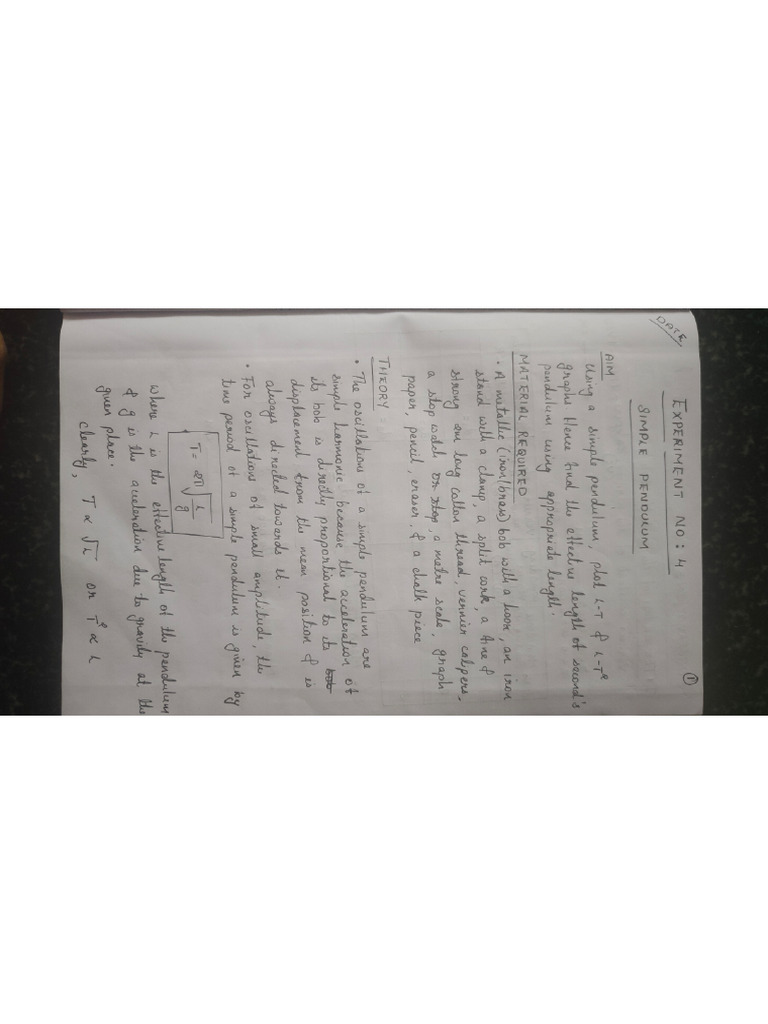 ①
DATE
EXPERIMENT NO: 4
SIMPLE PENDULUM
AIM
Using a simple pendulum, plot L-T & L-T²
graphs Hence find the effective length of second's
pendulum using appropriate length.
MATERIAL REQUIRED
• A metallic (iron/brass) bob with a hook, an iron
stand with a clamp, a split cork, a fine &
strong long cotton thread, vernier calipers,
a stop watch a metre scale, graph
paper, pencil, eraser & a chalk piece
THEORY
• The oscillations of a simple pendulum are
simple harmonic because the acceleration of
its bob is directly proportional to its
displacement from the mean position & is
always directed towards it.
• For oscillations of small amplitude, the
time period of a simple pendulum is given by
T = 2π√(L/g)
where L is the effective length of the pendulum
& g is the acceleration due to gravity at the
given place.
clearly, T ∝ √L or T² ∝ L